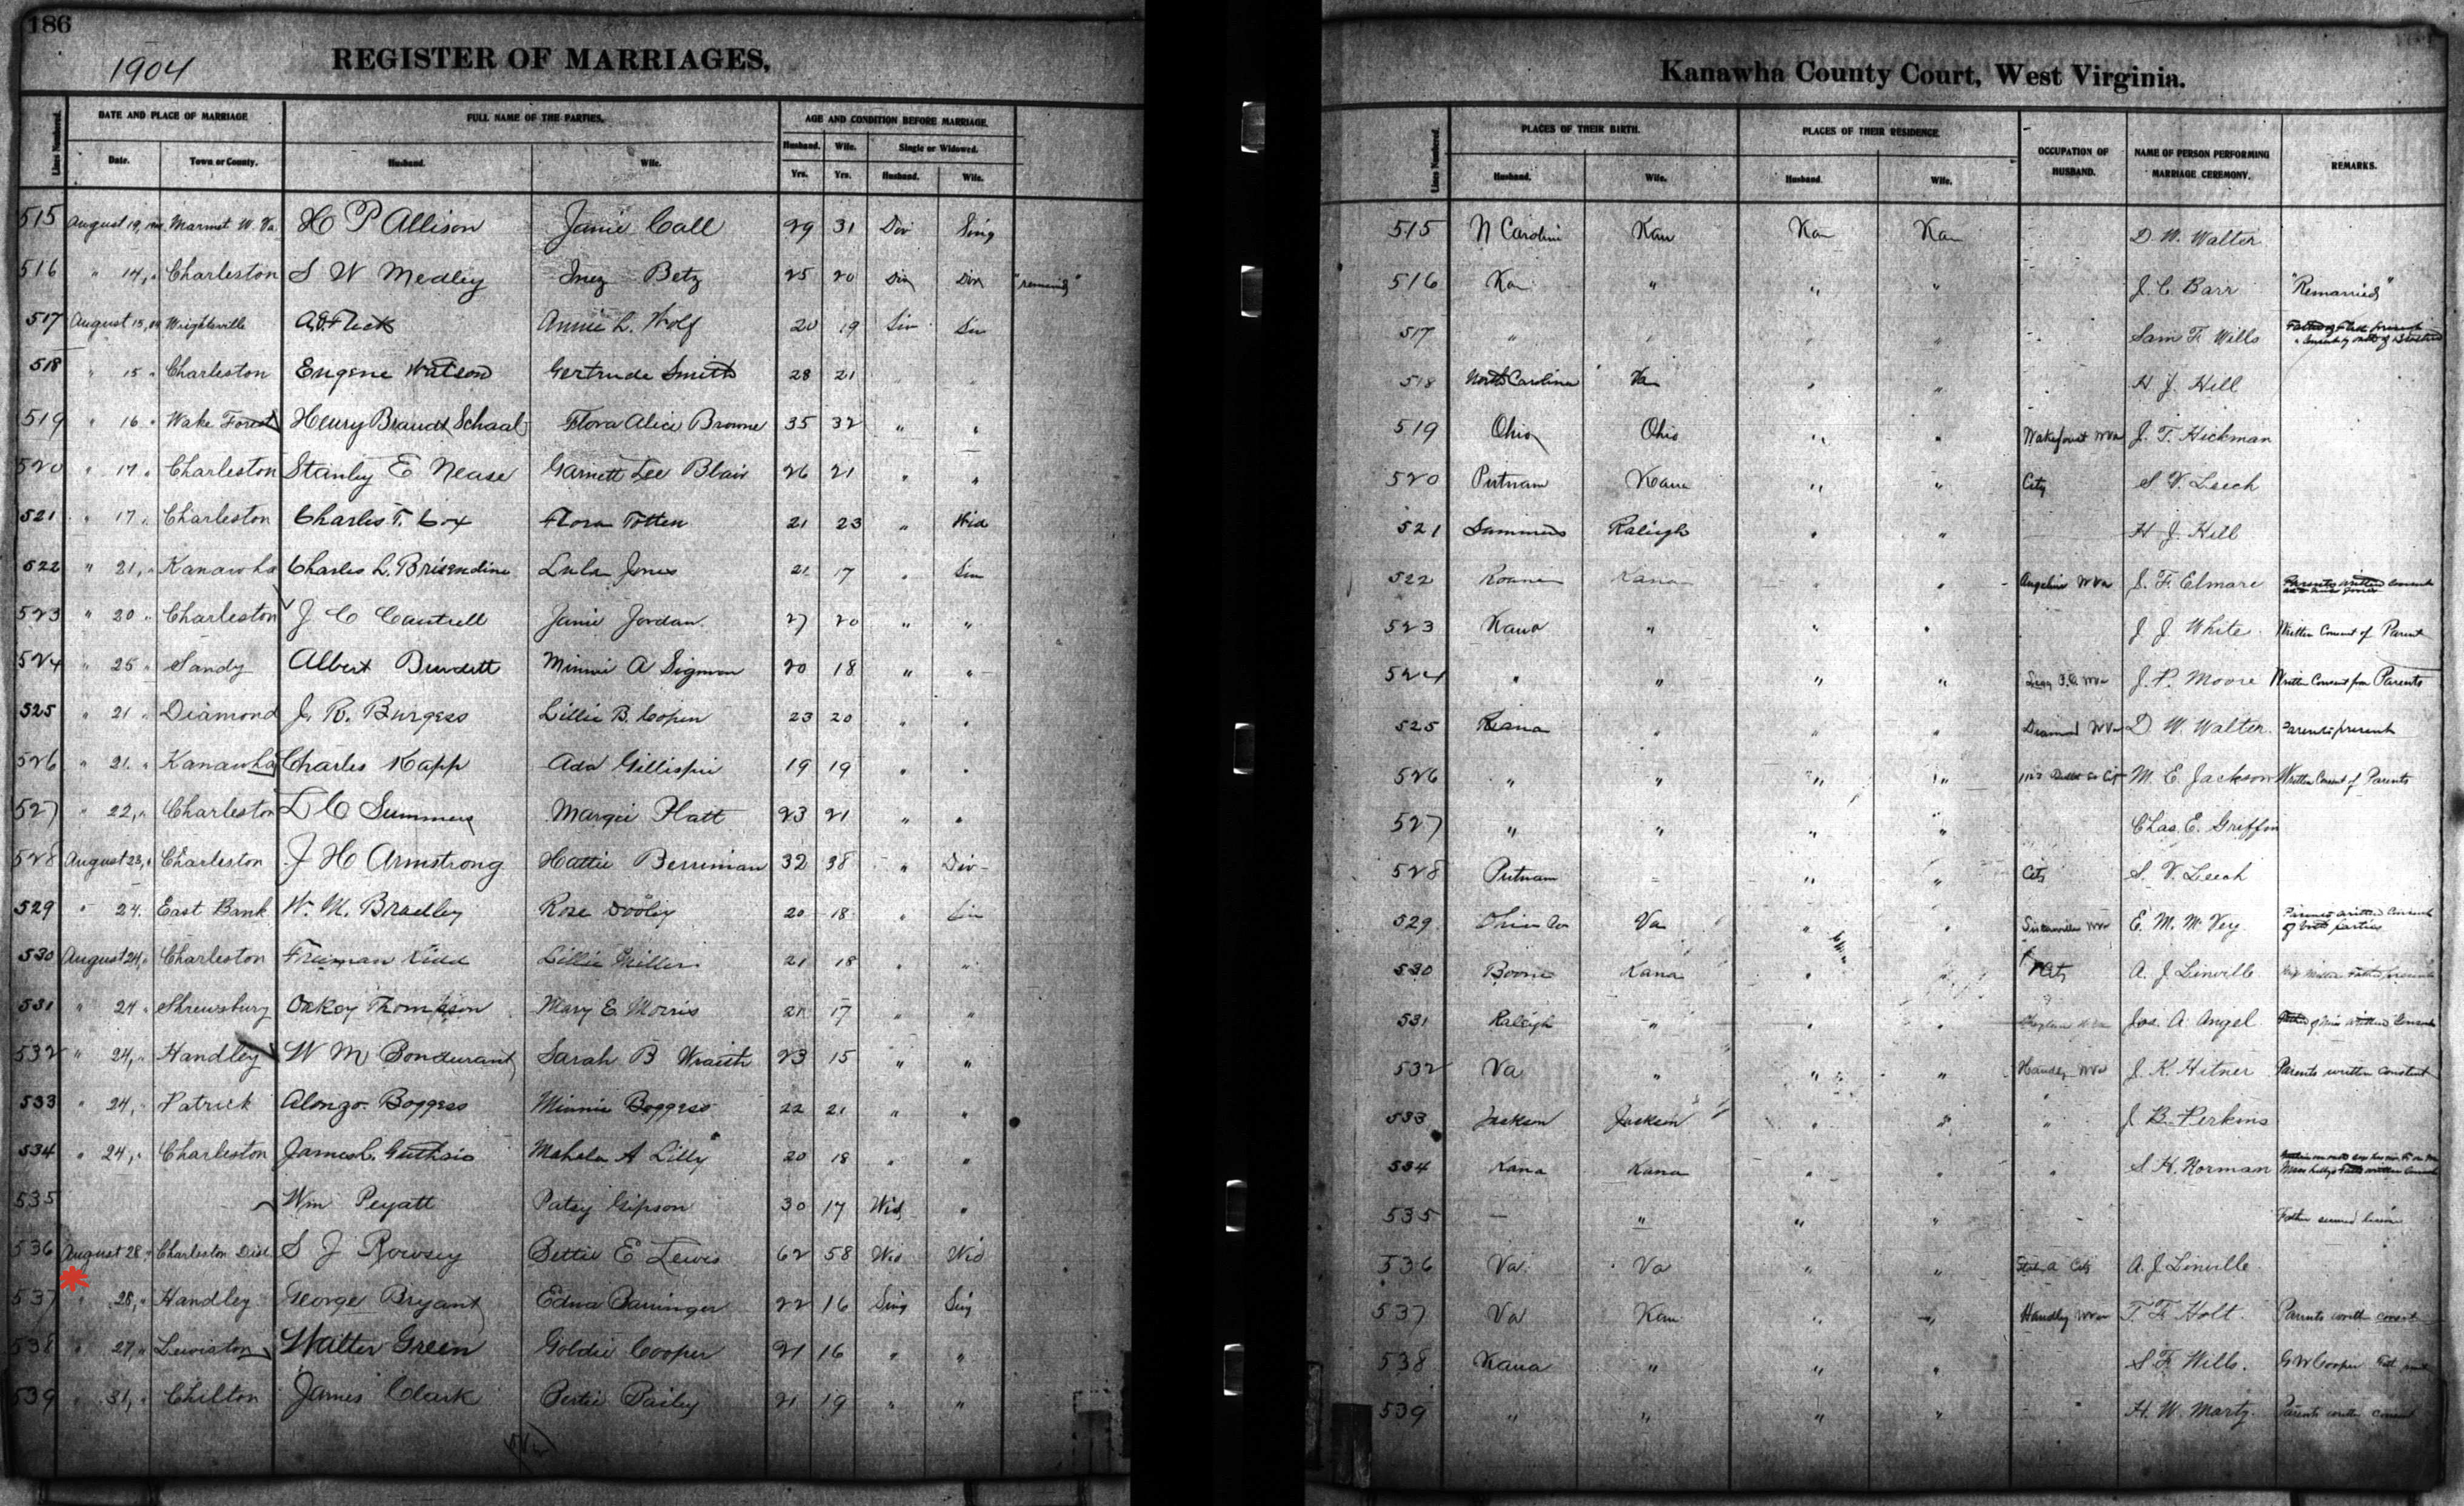 186
1904
REGISTER OF MARRIAGES.
Kanawha County Court, West Virginia.
Lines Numbered.
DATE AND PLACE OF MARRIAGE
FULL NAME OF THE PARTIES.
AGE AND CONDITION BEFORE MARRIAGE.
Date.
Town or County.
Husband.
Wife.
Husband.
Wife.
Single or Widowed.
Yrs.
Yrs.
Husband.
Wife.
Lines Numbered.
PLACES OF THEIR BIRTH.
PLACES OF THEIR RESIDENCE.
OCCUPATION OF HUSBAND.
NAME OF PERSON PERFORMING MARRIAGE CEREMONY.
REMARKS.
Husband.
Wife.
Husband.
Wife.
515 August 19, Marmet W. Va. H P Allison Janie Call 29 31 Div Sing
516 " 14, " Charleston S W Medley Inez Betz 25 20 Div Div
517 August 15, Wrightsville Annie L. Wolf 20 19 Sin Sin
518 " 15 " Charleston Eugene Watson Gertrude Smith 28 21 " "
519 " 16 " Wake Forest Henry Brandt Schaal Flora Alice Browne 35 32 " "
520 " 17 " Charleston Stanley E Nease Garnett Lee Blair 26 21 " "
521 " 17 " Charleston Charles T. Cox Flora Totten 21 23 " Wid
522 " 21, " Kanawha Charles L. Brisendine Lula Jones 21 17 " Sin
523 " 20 " Charleston J C Cantrell Janie Jordan 27 20 " "
524 " 25 " Sandy Albert Burdett Minnie A Sigmon 20 18 " "
525 " 21 " Diamond J. R. Burgess Lillie B. Copen 23 20 " "
526 " 21 " Kanawha Charles Kapp Ada Gillispie 19 19 " "
527 " 22, " Charleston L C Summers Margie Platt 23 21 " "
528 August 23, " Charleston J H Armstrong Hattie Berriman 32 38 " Div
529 " 24. East Bank W. M. Bradley Rose Dooley 20 18 " Sin
530 August 24, " Charleston Freeman Kidd Lillie Miller 21 18 " "
531 " 24 " Shrewsbury Oakey Thompson Mary E. Morris 21 17 " "
532 " 24, " Handley W M Bondurant Sarah B 23 15 " "
533 " 24, " Patrick Alonzo Boggess Minnie Boggess 22 21 " "
534 " 24, " Charleston James L. Guthrie Mahala A Lilly 20 18 " "
535 Wm Peyatt Patsy Gipson 30 17 Wid "
536 August 28 " Charleston Dist. S J Rowsey Bettie E Lewis 62 58 Wid Wid
537 " 28, " Handley George Bryant Edna Barringer 22 16 Sing Sing
538 " 27, " Lewiston Walter Green Goldie Cooper 21 16 " "
539 " 31, " Chilton James Clark Bertie Bailey 21 19 " "
515 N Carolin Kan Kan Kan D. W. Walter
516 Kan " " " J. C. Barr "Remarried"
517 " " " " Sam F. Wills
518 North Carolina Va " " H J. Hill
519 Ohio Ohio " " Wakeforest WVa J. T. Hickman
520 Putnam Kana " " City S. V. Leech
521 Summers Raleigh " " H J. Hill
522 Roane Kana " " S. F. Elmore
523 Kana " " " J J White Written Consent of Parent
524 " " " " J. P. Moore Written Consent from Parents
525 Kana " " " Diamond WVa D W. Walter. Parents present
526 " " " " M. E. Jackson Written Consent of Parents
527 " " " " Chas. E. Griffin
528 Putnam " " " City S. V. Leech
529 Ohio Co Va " " E. M. McVey Parents written Consent of both parties
530 Boone Kana " " City A. J. Linville
531 Raleigh " " " Jos. A. Angel
532 Va " " " Handley WVa J. K. Hitner Parents written consent
533 Jackson Jackson " " " J B. Perkins
534 Kana Kana " " " S. H. Norman
535 — " " "
536 Va Va " " A. J. Linville
537 Va Kan " " Handley WVa T. F. Holt. Parents writt consent
538 Kana " " " S F. Wills. G W Cooper
539 " " " " H. W. Martz. Parents writt consent